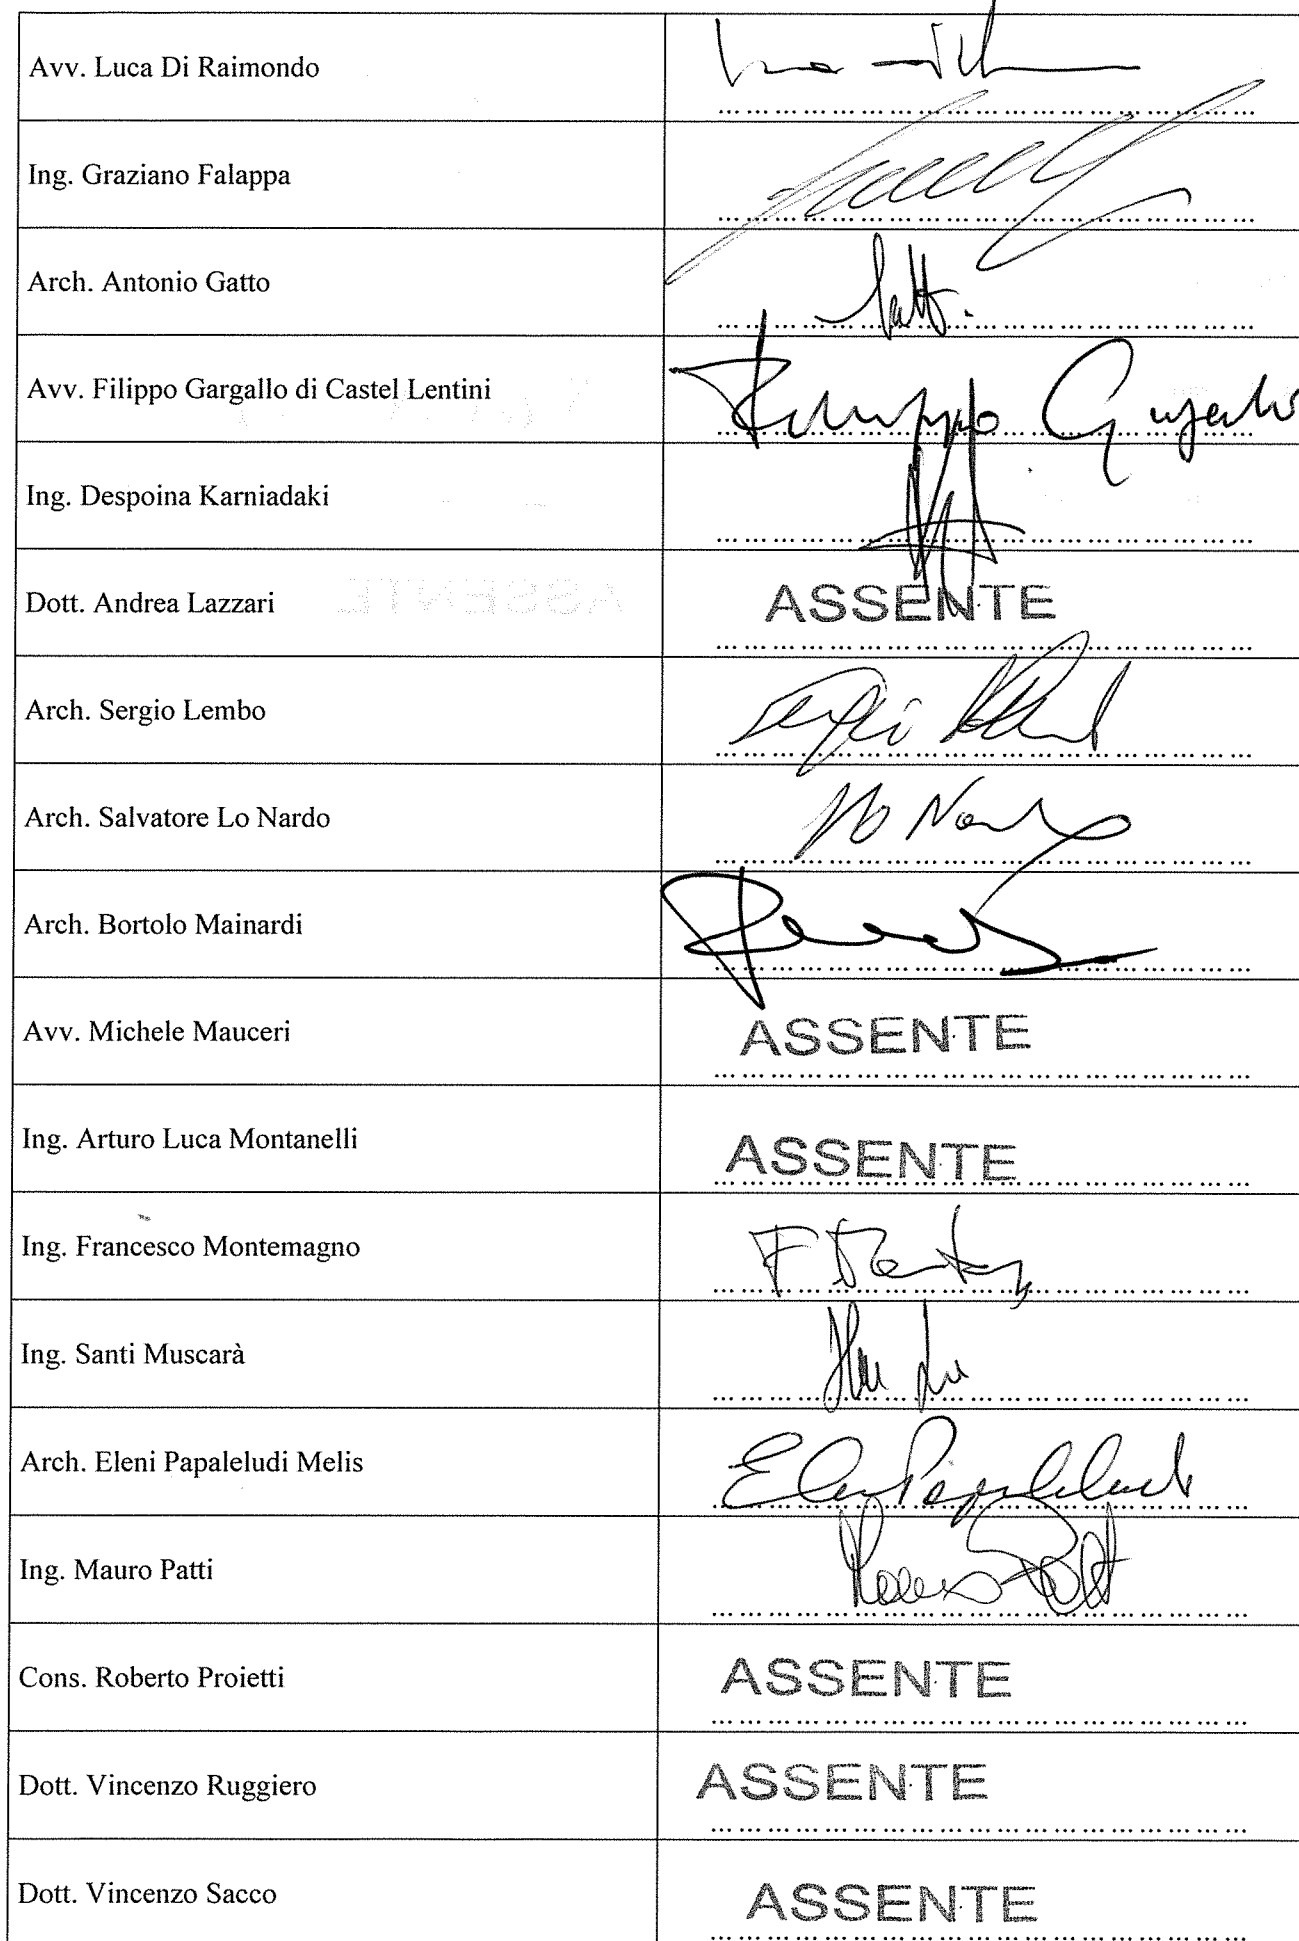 Avv. Luca Di Raimondo
Ing. Graziano Falappa
Arch. Antonio Gatto
Gatto.
Avv. Filippo Gargallo di Castel Lentini
Filippo Gargallo
Ing. Despoina Karniadaki
Dott. Andrea Lazzari ASSENTE
Arch. Sergio Lembo
Sergio
Arch. Salvatore Lo Nardo
Lo Nardo
Arch. Bortolo Mainardi
Avv. Michele Mauceri ASSENTE
Ing. Arturo Luca Montanelli ASSENTE
Ing. Francesco Montemagno
Ing. Santi Muscarà
Arch. Eleni Papaleludi Melis
Eleni Papaleludi
Ing. Mauro Patti
Mauro Patti
Cons. Roberto Proietti ASSENTE
Dott. Vincenzo Ruggiero ASSENTE
Dott. Vincenzo Sacco ASSENTE